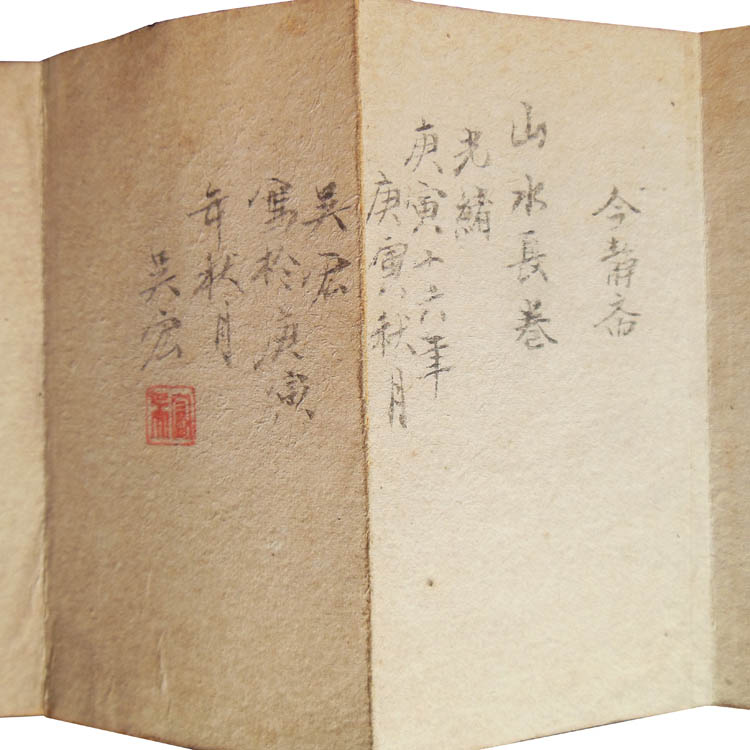 今靜斋
山水長卷
光緒
庚寅十六年
庚寅秋月
吴宏
寫於庚寅
年秋月
吴宏